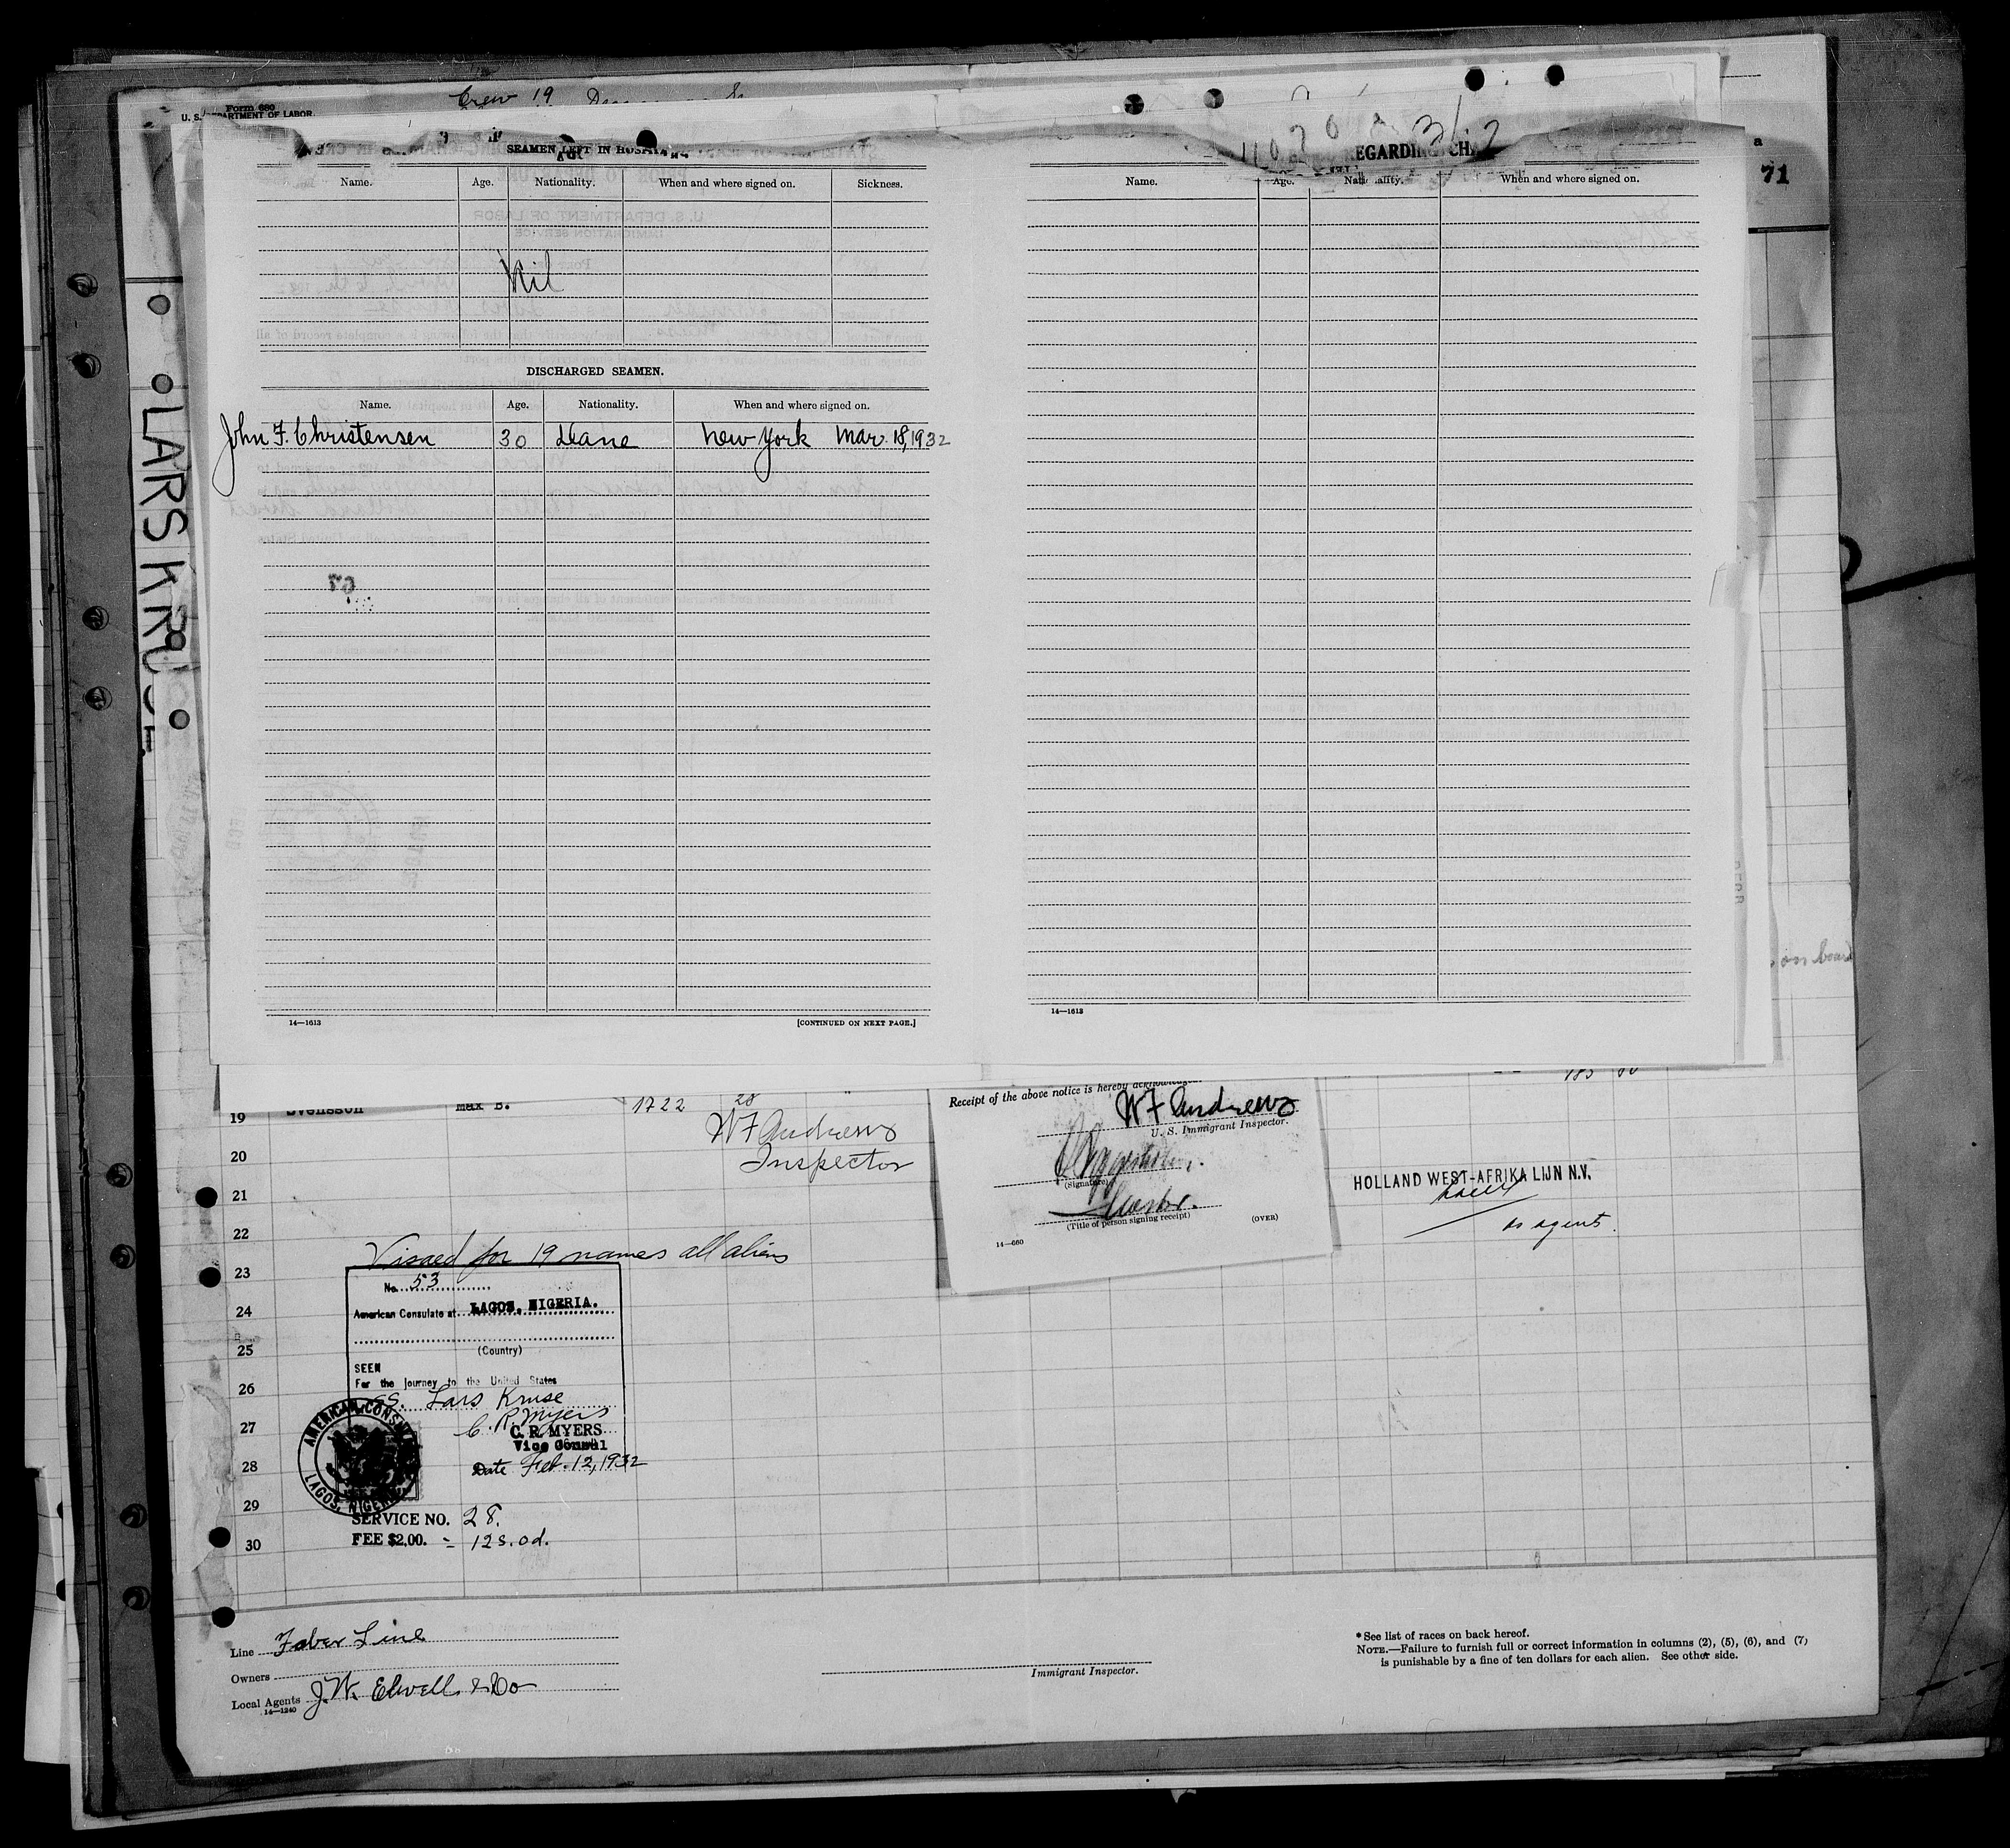 Form 680
U. S. DEPARTMENT OF LABOR
Crew 19
71
LARS KRUSE
SEAMEN LEFT IN
Name. Age. Nationality. When and where signed on. Sickness.
Nil
DISCHARGED SEAMEN.
Name. Age. Nationality. When and where signed on.
John F. Christensen 30 Dane New York Mar. 18, 1932
14—1613 [CONTINUED ON NEXT PAGE.]
REGARDING
Name. Age. Nationality. When and where signed on.
14—1613
on board
19 Svensson Max B. 1722 28
W F Andrews
Inspector
20
21
22
Visaed for 19 names all aliens
23
No. 53
24
American Consulate at LAGOS, NIGERIA.
25
(Country)
SEEN
For the journey to the United States
26
SS. Lars Kruse
C. R. Myers
27
C. R. MYERS
Vice Consul
28
Date Feb. 12, 1932
AMERICAN CONSULATE
LAGOS, NIGERIA
29
SERVICE NO. 28.
30
FEE $2.00. = 12s. od.
Receipt of the above notice is hereby acknowledged.
W F Andrews
U. S. Immigrant Inspector.
(Signature)
Master.
(Title of person signing receipt)
(OVER)
14—660
HOLLAND WEST-AFRIKA LIJN N.V.
as agents.
Line Faber Line
Owners
Local Agents J. W. Elwell & Co
14—1240
Immigrant Inspector.
*See list of races on back hereof.
NOTE.—Failure to furnish full or correct information in columns (2), (5), (6), and (7)
is punishable by a fine of ten dollars for each alien. See other side.